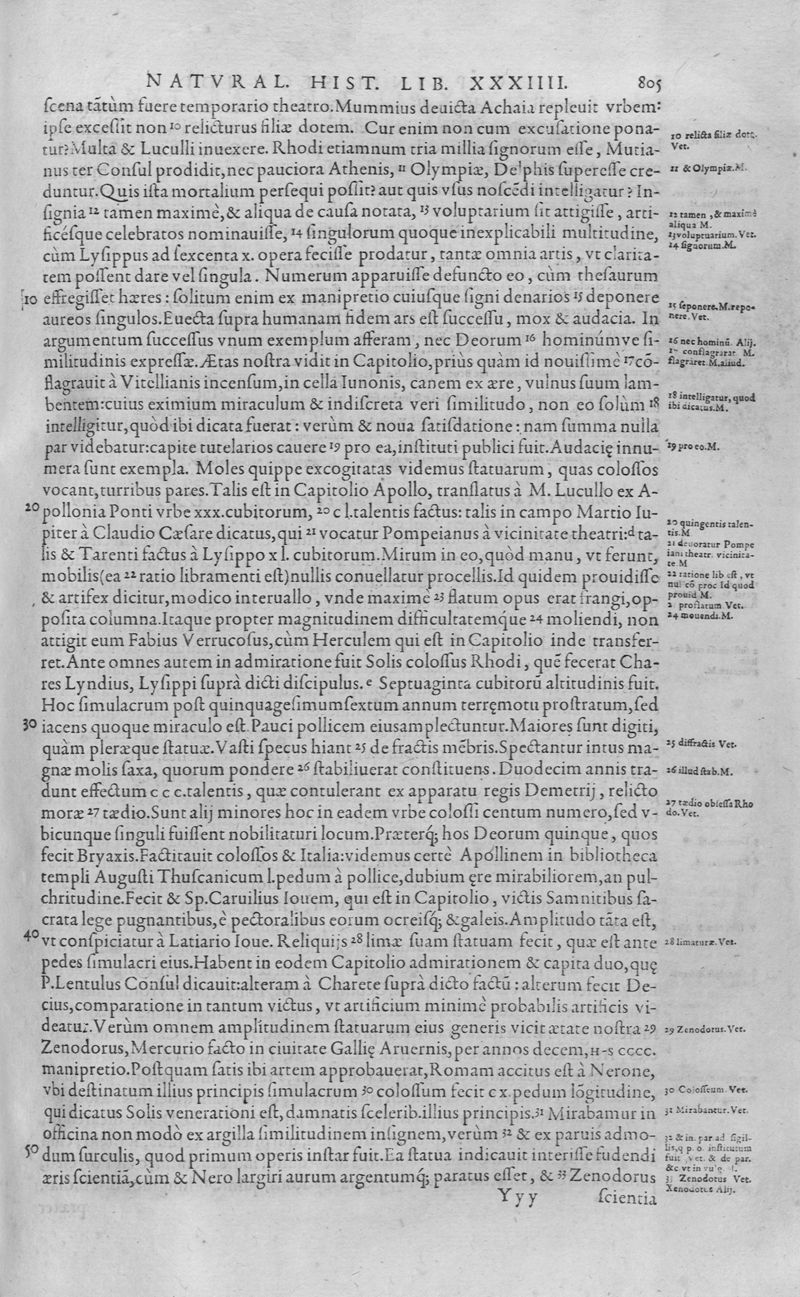 NATVRAL. HIST. LIB. XXXIIII. 805
ſcena tātùm fuere temporario theatro. Mummius deuicta Achaia repleuit vrbem:
ipſe exceſſit non ¹⁰ relicturus filiæ dotem. Cur enim non cum excuſatione pona-
tur? Multa & Luculli inuexere. Rhodi etiamnum tria millia ſignorum eſſe, Mutia-
nus ter Conſul prodidit, nec pauciora Athenis, ¹¹ Olympiæ, Delphis ſupereſſe cre-
duntur. Quis iſta mortalium perſequi poſſit? aut quis vſus noſcēdi intelligatur? In-
ſignia ¹² tamen maximè, & aliqua de cauſa notata, ¹³ voluptarium ſit attigiſſe, arti-
ficéſque celebratos nominauiſſe, ¹⁴ ſingulorum quoque inexplicabili multitudine,
cùm Lyſippus ad ſexcenta x. opera feciſſe prodatur, tantæ omnia artis, vt clarita-
tem poſſent dare vel ſingula. Numerum apparuiſſe defuncto eo, cùm theſaurum
10 effregiſſet hæres: ſolitum enim ex manipretio cuiuſque ſigni denarios ¹⁵ deponere
aureos ſingulos. Euecta ſupra humanam fidem ars eſt ſucceſſu, mox & audacia. In
argumentum ſucceſſus vnum exemplum afferam, nec Deorum ¹⁶ hominúmve ſi-
militudinis expreſſæ. Ætas noſtra vidit in Capitolio, priùs quàm id nouiſſimè ¹⁷ cō-
flagrauit à Vitellianis incenſum, in cella Iunonis, canem ex ære, vulnus ſuum lam-
bentem: cuius eximium miraculum & indiſcreta veri ſimilitudo, non eo ſolùm ¹⁸
intelligitur, quòd ibi dicata fuerat: verùm & noua ſatiſdatione: nam ſumma nulla
par videbatur: capite tutelarios cauere ¹⁹ pro ea, inſtituti publici fuit. Audacię innu-
mera ſunt exempla. Moles quippe excogitatas videmus ſtatuarum, quas coloſſos
vocant, turribus pares. Talis eſt in Capitolio Apollo, tranſlatus à M. Lucullo ex A-
20 pollonia Ponti vrbe xxx. cubitorum, ²⁰ c l. talentis factus: talis in campo Martio Iu-
piter à Claudio Cæſare dicatus, qui ²¹ vocatur Pompeianus à vicinitate theatri: ᵈ ta-
lis & Tarenti factus à Lyſippo x l. cubitorum. Mirum in eo, quòd manu, vt ferunt,
mobilis (ea ²² ratio libramenti eſt) nullis conuellatur procellis. Id quidem prouidiſſe
& artifex dicitur, modico interuallo, vnde maximè ²³ flatum opus erat frangi, op-
poſita columna. Itaque propter magnitudinem difficultatemque ²⁴ moliendi, non
attigit eum Fabius Verrucoſus, cùm Herculem qui eſt in Capitolio inde transfer-
ret. Ante omnes autem in admiratione fuit Solis coloſſus Rhodi, quē fecerat Cha-
res Lyndius, Lyſippi ſuprà dicti diſcipulus. ᵉ Septuaginta cubitorū altitudinis fuit.
Hoc ſimulacrum poſt quinquageſimumſextum annum terręmotu proſtratum, ſed
30 iacens quoque miraculo eſt. Pauci pollicem eius amplectuntur. Maiores ſunt digiti,
quàm pleræque ſtatuæ. Vaſti ſpecus hiant ²⁵ de fractis mēbris. Spectantur intus ma-
gnæ molis ſaxa, quorum pondere ²⁶ ſtabiliuerat conſtituens. Duodecim annis tra-
dunt effectum c c c. talentis, quæ contulerant ex apparatu regis Demetrij, relicto
moræ ²⁷ tædio. Sunt alij minores hoc in eadem vrbe coloſſi centum numero, ſed v-
bicunque ſinguli fuiſſent nobilitaturi locum. Præterq; hos Deorum quinque, quos
fecit Bryaxis. Factitauit coloſſos & Italia: videmus certè Apollinem in bibliotheca
templi Auguſti Thuſcanicum l. pedum à pollice, dubium ęre mirabiliorem, an pul-
chritudine. Fecit & Sp. Caruilius Iouem, qui eſt in Capitolio, victis Samnitibus ſa-
crata lege pugnantibus, è pectoralibus eorum ocreiſq; & galeis. Amplitudo tāta eſt,
40 vt conſpiciatur à Latiario Ioue. Reliquijs ²⁸ limæ ſuam ſtatuam fecit, quæ eſt ante
pedes ſimulacri eius. Habent in eodem Capitolio admirationem & capita duo, quę
P. Lentulus Conſul dicauit: alteram à Charete ſuprà dicto factū: alterum fecit De-
cius, comparatione in tantum victus, vt artificium minimè probabilis artificis vi-
deatur. Verùm omnem amplitudinem ſtatuarum eius generis vicit ætate noſtra ²⁹
Zenodorus, Mercurio facto in ciuitate Gallię Aruernis, per annos decem, H-S cccc.
manipretio. Poſtquam ſatis ibi artem approbauerat, Romam accitus eſt à Nerone,
vbi deſtinatum illius principis ſimulacrum ³⁰ coloſſum fecit c x. pedum lōgitudine,
qui dicatus Solis venerationi eſt, damnatis ſcelerib. illius principis. ³¹ Mirabamur in
officina non modò ex argilla ſimilitudinem inſignem, verùm ³² & ex paruis admo-
50 dum ſurculis, quod primum operis inſtar fuit. Ea ſtatua indicauit interiiſſe fudendi
æris ſcientiā, cùm & Nero largiri aurum argentumq; paratus eſſet, & ³³ Zenodorus
Yyy ſcientia
10 relicta filiæ dote.
Vet.
11 & Olympiæ. M.
12 tamen, & maximè
aliqua M.
13 voluptuarium. Vet.
14 ſignorum. M.
15 ſeponere. M. repo-
nere. Vet.
16 nec hominū. Alij.
17 conflagrarat M.
flagraret. M. aliud.
18 intelligatur, quod
ibi dicatus. M.
19 pro eo. M.
20 quingentis talen-
tis. M
21 deuoratur Pompe
iani theatr. vicinita-
te M
22 ratione lib eſt, vt
nul cō proc Id quod
prouid M.
2 proflatum Vet.
24 mouendi. M.
25 diffractis Vet.
26 illud ſtab. M.
27 tædio obſeſſa Rho
do. Vet.
28 limaturæ. Vet.
29 Zenodotus. Vet.
30 Coloſſeum. Vet.
31 Mirabantur. Vet.
32 & in. par ad ſigil-
lis, q p. o. inſtitutum
fuit. Vet. & de par.
33 Zenodotus Vet.
Xenodotus Alij.